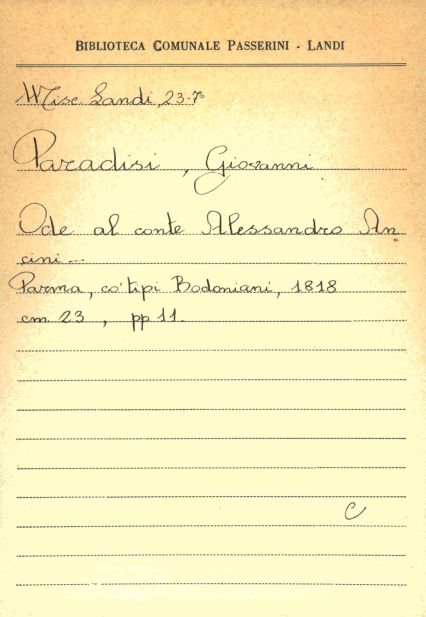 BIBLIOTECA COMUNALE PASSERINI - LANDI
Misc. Landi, 23-7º
Paradisi, Giovanni
Ode al conte Alessandro An=
cini...
Parma, co' tipi Bodoniani, 1818
cm. 23, pp 11.
C